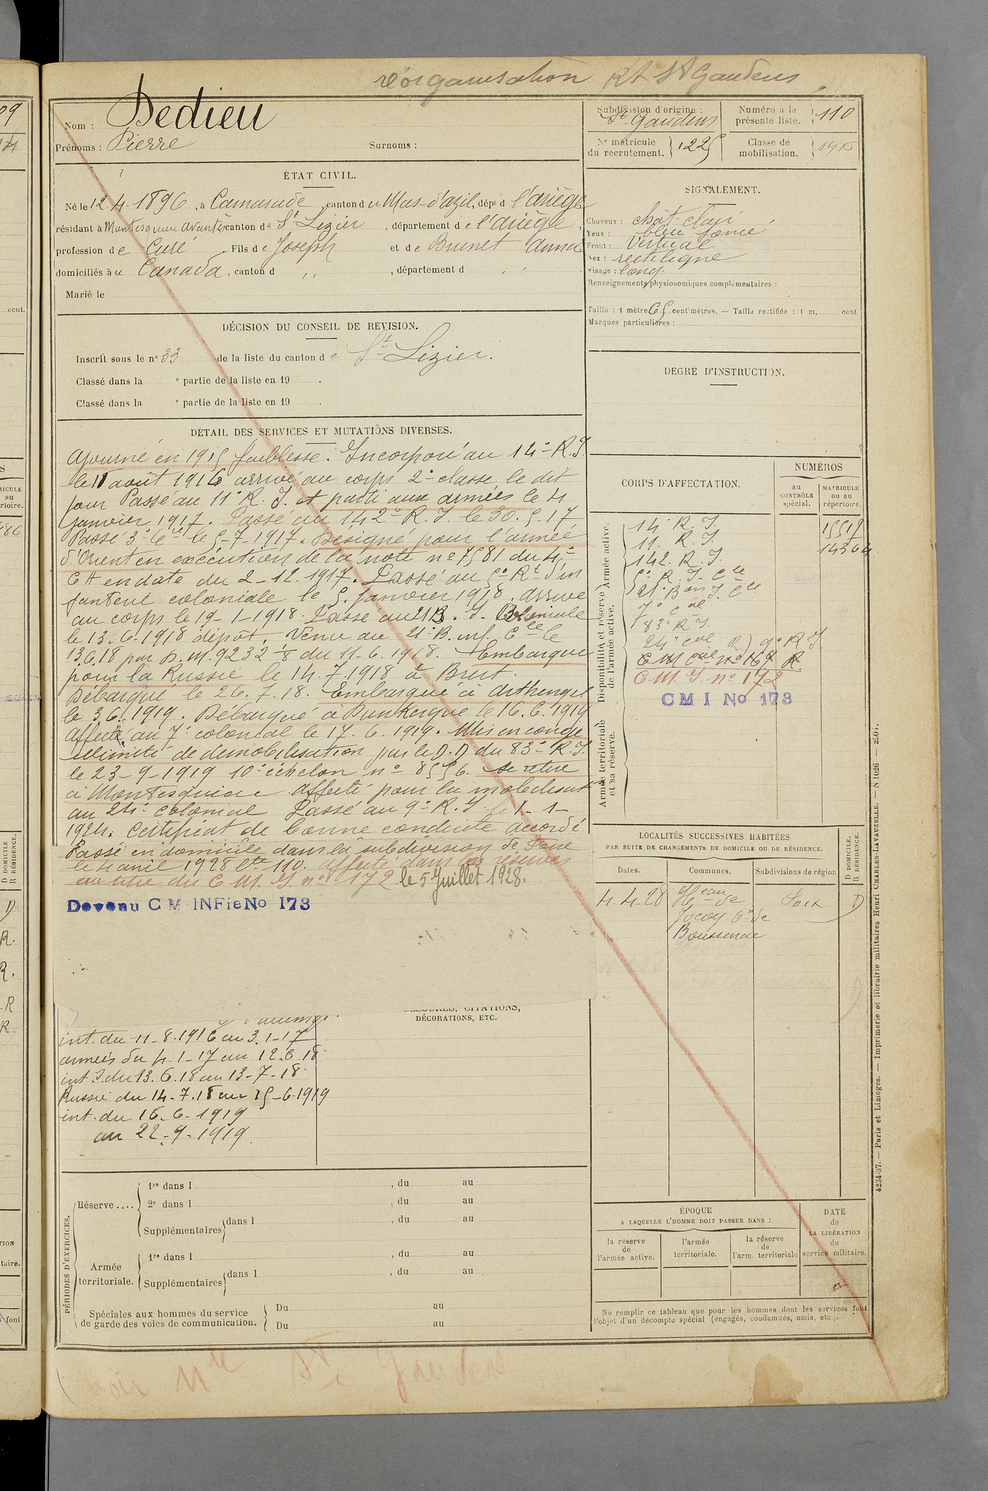 réorganisation Rt St Gaudens
Nom : Dedieu
Prénoms : Pierre Surnoms :
ÉTAT CIVIL.
Né le 12-4-1896, à Camarade, canton du Mas-d'azil, dép.t d l'ariège
résidant à Montesquieu Avantès canton de St Lizier, département de l'ariège,
profession de Curé. Fils de Joseph et de Brunet Anna
domiciliés au Canada, canton d ,, , département d ,,
Marié le
DÉCISION DU CONSEIL DE REVISION.
Inscrit sous le n° 33 de la liste du canton de St Lizier.
Classé dans la e partie de la liste en 19 .
Classé dans la e partie de la liste en 19 .
DÉTAIL DES SERVICES ET MUTATIONS DIVERSES.
Ajourné en 1915 faiblesse. Incorporé au 14e R.I
le 11 août 1916 arrivé au corps 2e classe le dit
jour Passé au 11e R.I. et parti aux armées le 4
Janvier 1917. Passé au 142e R.I. le 30.5-17
Passé 3e le 5-7-1917. Désigné pour l'armée
d'Orient en exécution de la note n° 7581 du 4e
en date du 2-12.1917. Passé au 5e Rt d'in
fanterie coloniale le 5 janvier 1918, arrivé
au corps le 19-1-1918. Passé au 21 B. I. Coloniale
le 13.6.1918 dépôt. Venu au 21e B. inf. Cle le
13.6.18 par D.M. 9232 1/8 du 11.6.1918. Embarqué
pour la Russie le 14.7.1918 à Brest.
Débarqué le 26.7.18. Embarqué à Arkhengel
le 3.6.1919. Débarqué à Dunkerque le 16.6.1919
affecté au 7e colonial le 17.6.1919. Mis en congé
illimité de démobilisation par le D.D du 83e R.I.
le 23-9-1919 10e échelon n° 8596. Se retire
à Montesquieu. Affecté pour la mobilisation
au 24e colonial Passé au 9e R.I le 1-1-
1924. Certificat de bonne conduite accordé
Passé en domicile dans la subdivision de Foix
le 4 avril 1928 110. affecté dans les réserves
au titre du C.M.I n° 172 le 5 Juillet 1928.
Devenu C M INFie No 173
int. du 11-8-1916 au 3.1-17
armées du 4-1-17 au 12.6.18
int I du 13.6.18 au 13-7-18
Russie du 14-7.18 au 15-6-1919
int. du 16.6.1919
au 22-9-1919.
BLESSURES, CITATIONS,
DÉCORATIONS, ETC.
PÉRIODES D'EXERCICES.
Réserve....
1re dans l , du au
2e dans l , du au
Supplémentaires dans l , du au
Armée territoriale.
1re dans l , du au
Supplémentaires dans l , du au
Spéciales aux hommes du service
de garde des voies de communication.
Du au
Du au
Subdivision d'origine :
St Gaudens
N° matricule
du recrutement. 1225
Numéro à la
présente liste. 110
Classe de
mobilisation. 1915
SIGNALEMENT.
Cheveux : chât-clair
Yeux : bleu foncé
Front : Vertical
Nez : rectiligne
Visage : long
Renseignements physionomiques complémentaires :
Taille : 1 mètre 65 centimètres. — Taille rectifiée : 1 m. cent
Marques particulières :
DEGRÉ D'INSTRUCTION.
CORPS D'AFFECTATION.
NUMÉROS
au
CONTRÔLE
spécial.
MATRICULE
ou au
répertoire.
Armée active.
Disponibilité et réserve
de l'armée active.
Armée territoriale
et sa réserve.
14e R.I. 15517
11. R.I. 14364
142. R.I
5e R.I. Cle
21e Bon I. Cle
7e Cal
83e R.I.
24e Cal R) 9e R.I.
C.M. Cal n° 162 R.
C.M.I. n° 172
C M I No 173
LOCALITÉS SUCCESSIVES HABITÉES
PAR SUITE DE CHANGEMENTS DE DOMICILE OU DE RÉSIDENCE.
D DOMICILE.
R RÉSIDENCE.
Dates. Communes. Subdivisions de région
4.4.28 Hleau de Foix D
Boussenac
ÉPOQUE
A LAQUELLE L'HOMME DOIT PASSER DANS :
la réserve
de
l'armée active.
l'armée
territoriale.
la réserve
de
l'arm. territoriale
DATE
de
LA LIBÉRATION
du
service militaire.
Ne remplir ce tableau que pour les hommes dont les services font
l'objet d'un décompte spécial (engagés, condamnés, omis, etc.).
4234-37. — Paris et Limoges. — Imprimerie et librairie militaires Henri CHARLES-LAVAUZELLE. — N 1026
Voir Nle St Gaudens